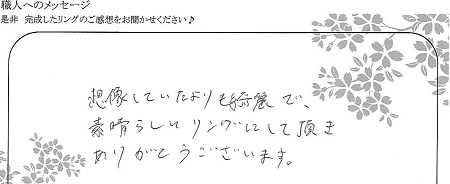 職人へのメッセージ
是非 完成したリングのご感想をお聞かせください♪
想像していたよりも綺麗で、
素晴らしいリングにして頂き
ありがとうございます。